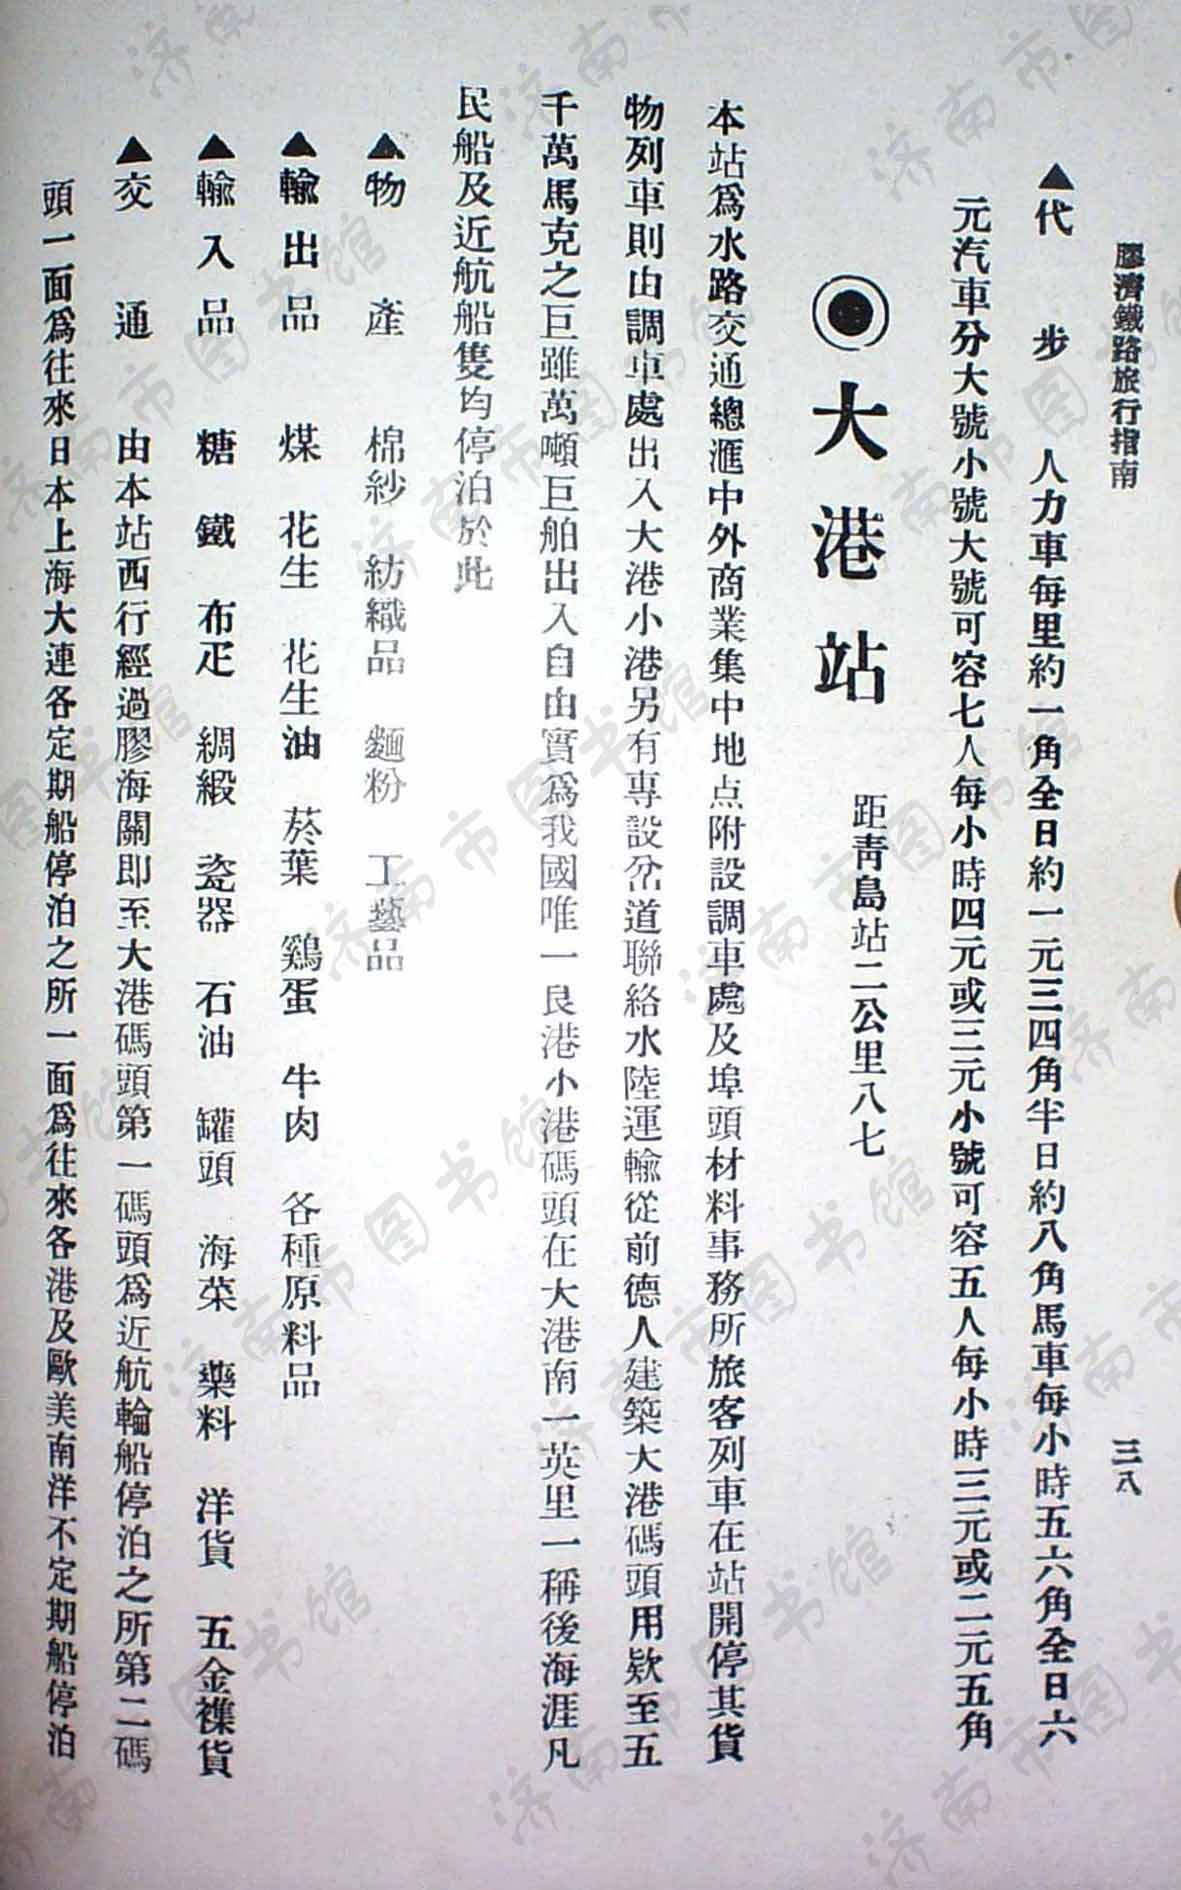 膠濟鐵路旅行指南
三八
▲代步 人力車每里約一角全日約一元三四角半日約八角馬車每小時五六角全日六
元汽車分大號小號大號可容七人每小時四元或三元小號可容五人每小時三元或二元五角
◉大港站 距靑島站二公里八七
本站爲水路交通總滙中外商業集中地点附設調車處及埠頭材料事務所旅客列車在站開停其貨
物列車則由調車處出入大港小港另有專設岔道聯絡水陸運輸從前德人建築大港碼頭用欵至五
千萬馬克之巨雖萬噸巨舶出入自由實爲我國唯一良港小港碼頭在大港南一英里一稱後海涯凡
民船及近航船隻均停泊於此
▲物產 棉紗 紡織品 麵粉 工藝品
▲輸出品 煤 花生 花生油 菸葉 鷄蛋 牛肉 各種原料品
▲輸入品 糖 鐵 布疋 綢緞 瓷器 石油 罐頭 海菜 藥料 洋貨 五金襍貨
▲交通 由本站西行經過膠海關即至大港碼頭第一碼頭爲近航輪船停泊之所第二碼
頭一面爲往來日本上海大連各定期船停泊之所一面爲往來各港及歐美南洋不定期船停泊
济南市图书馆